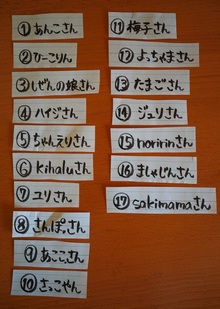 ①あんこさん
②ひーこりん
③しぜんの娘さん
④ハイジさん
⑤ちゃんえりさん
⑥kihaluさん
⑦ユリさん
⑧さんぽさん
⑨あここさん
⑩さっこやん
⑪梅子さん
⑫よっちゃまさん
⑬たまごさん
⑭ジュリさん
⑮noririnさん
⑯ましゃじんさん
⑰sakimamaさん